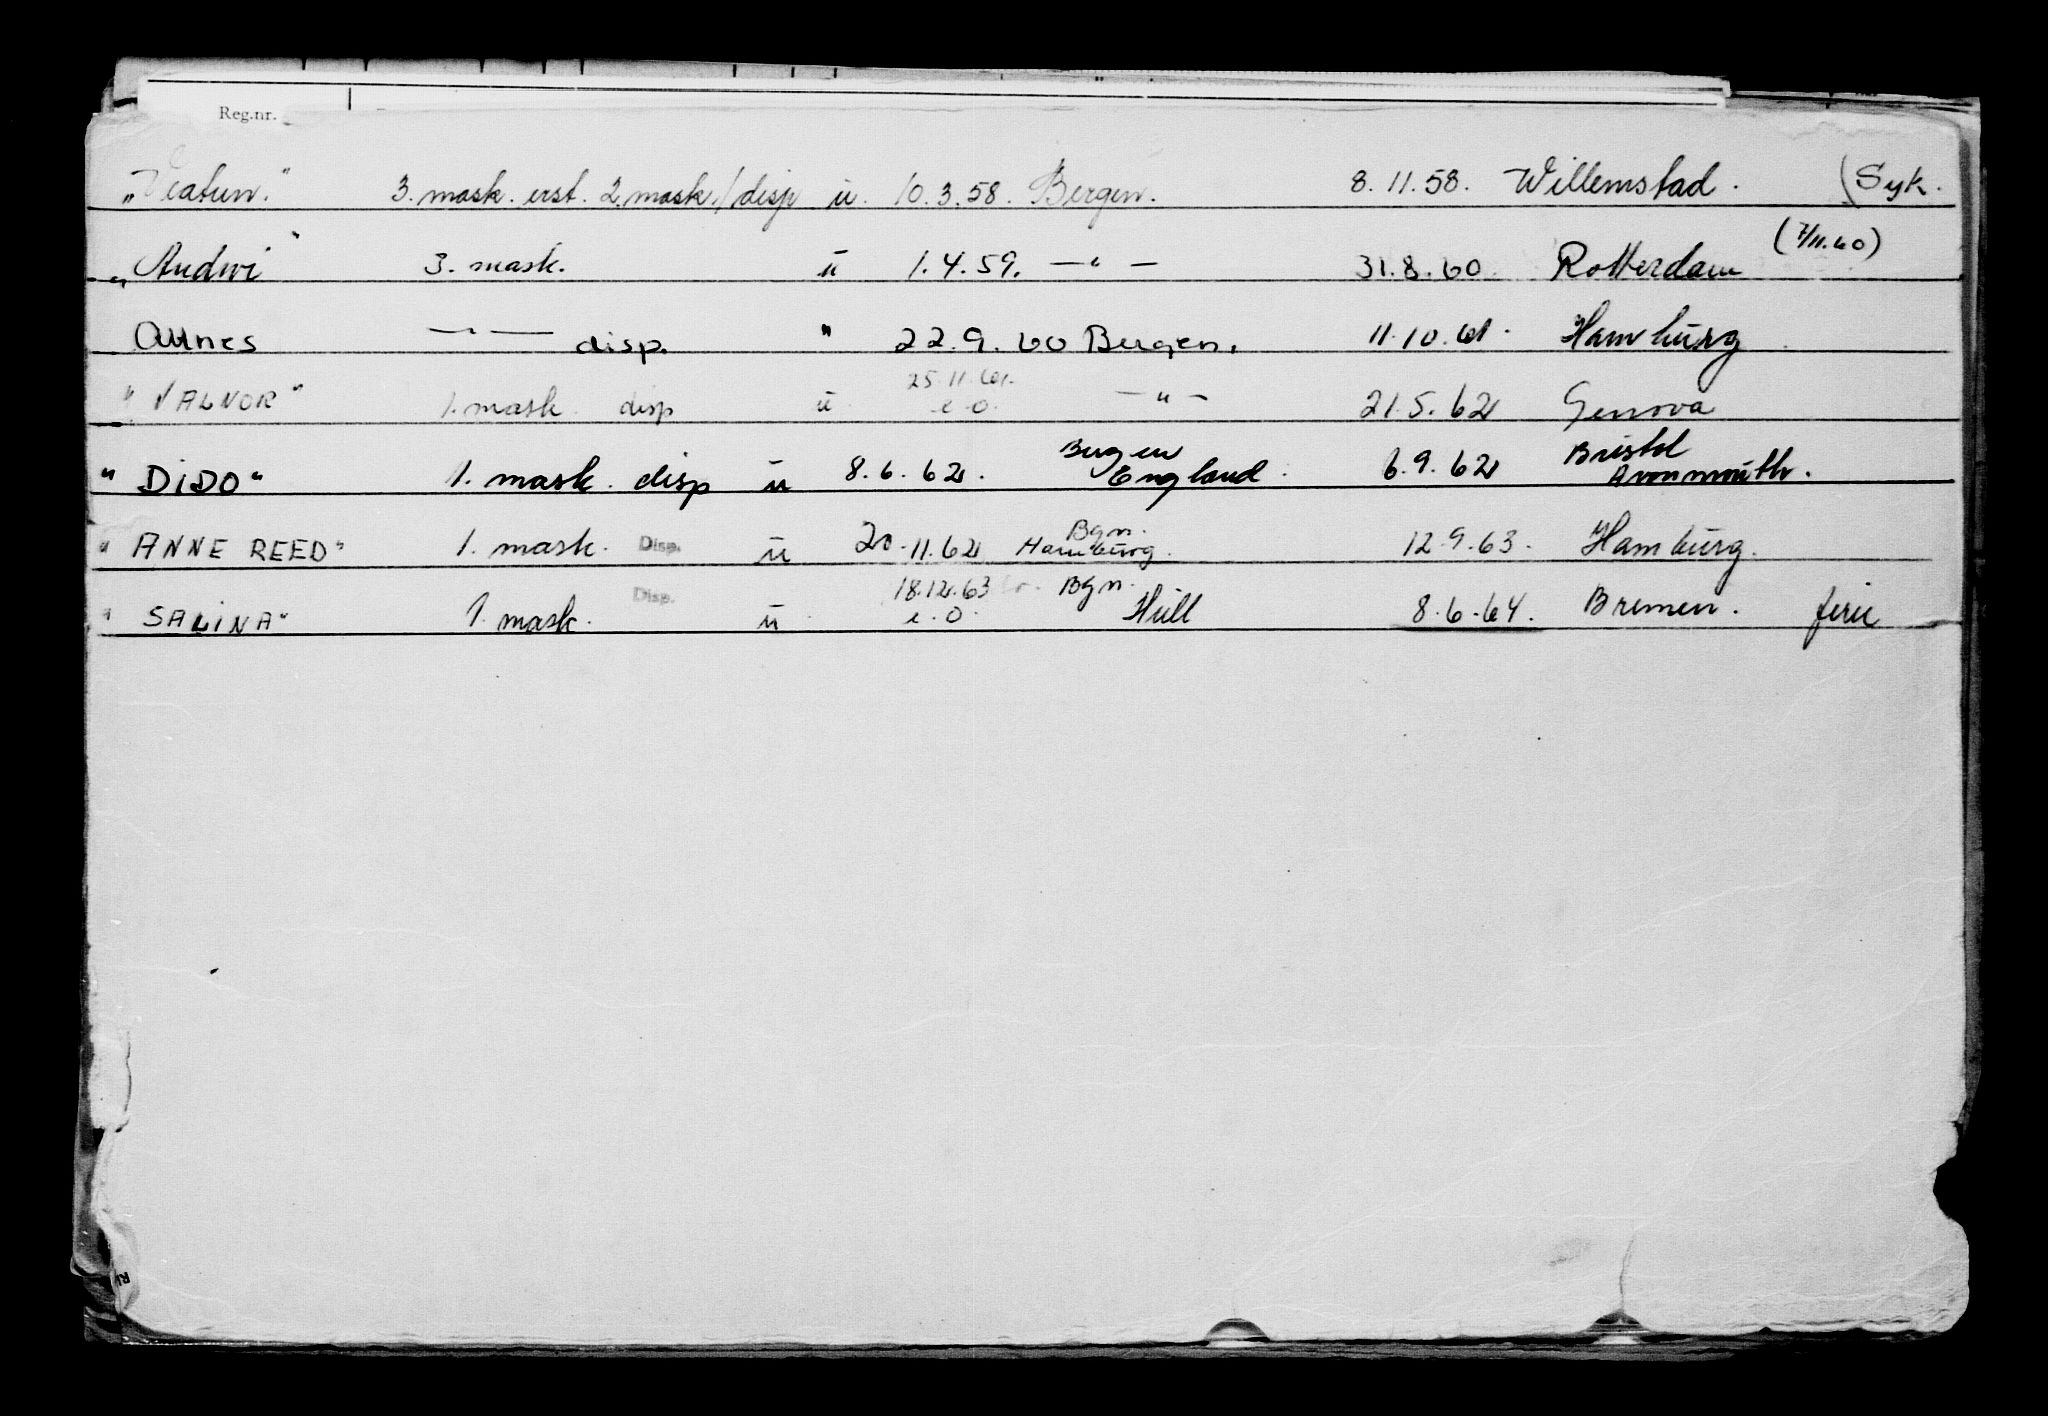 Reg.nr.
3. mask. erst. 2. mask. / disp u. 10.3.58. Bergen. 8.11.58. Willemstad. (Syk.
"Audwi" 3. mask. u 1.4.59. —"— 31.8.60 Rotterdam (7/11.60)
—"— disp. " 22.9.60 Bergen. 11.10.61. Hamburg
"VALNOR" 1. mask. disp u 25.11.61. e.o. —"— 21.5.62 Genova
"DIDO" 1. mask. disp u 8.6.62. Bergen England. 6.9.62 Bristol Avonmouth.
"ANNE REED" 1. mask. Disp. u 20.11.62 Bgn. Hamburg. 12.9.63. Hamburg.
"SALINA" 1. mask. Disp. u 18.12.63 e.o. Bgn. Hull 8.6.64. Bremen. ferie